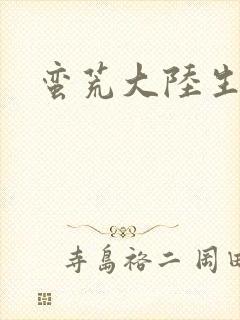 蛮荒大陸生
寺島裕二 岡田